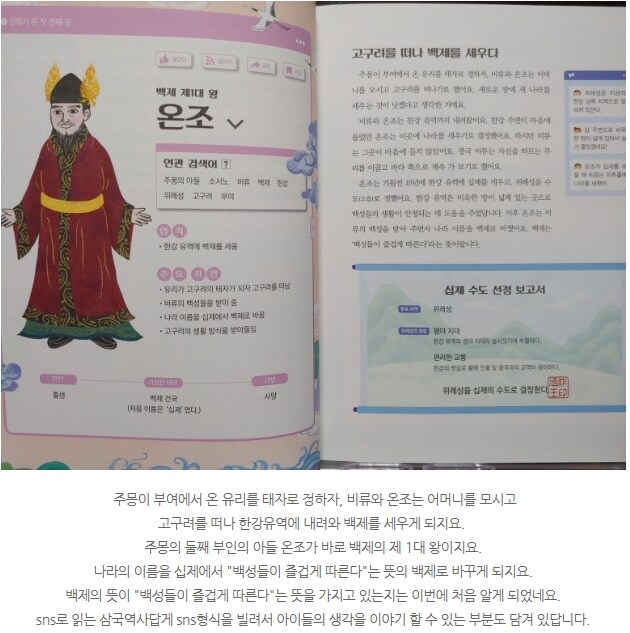 백제 제1대 왕
온조
연관 검색어 ?
주몽의 아들 소서노 비류 백제 한강
위례성 고구려 부여
업적
• 한강 유역에 백제를 세움
주요 사건
• 유리가 고구려의 태자가 되자 고구려를 떠남
• 비류의 백성들을 받아 줌
• 나라 이름을 십제에서 백제로 바꿈
• 고구려의 생활 방식을 받아들임
출생
기원전 18년
백제 건국
(처음 이름은 '십제'였다.)
사망
고구려를 떠나 백제를 세우다
주몽이 부여에서 온 유리를 태자로 정하자, 비류와 온조는 어머
니를 모시고 고구려를 떠나기로 했어요. 새로운 땅에 새 나라를
세우는 것이 낫겠다고 생각한 거예요.
비류와 온조는 한강 유역까지 내려왔어요. 한강 주변이 마음에
들었던 온조는 이곳에 나라를 세우기로 결정했어요. 하지만 비류
는 그곳이 마음에 들지 않았어요. 결국 비류는 자신을 따르는 무
리를 이끌고 바다 쪽으로 계속 가 보기로 했어요.
온조는 기원전 18년에 한강 유역에 십제를 세우고, 위례성을 수
도로 정했어요. 한강 유역은 비옥한 땅이 넓게 있는 곳으로
백성들의 생활이 안정되는 데 도움을 주었답니다. 이후 온조는 비
류의 백성을 받아 주면서 나라 이름을 백제로 바꿨어요. 백제는
'백성들이 즐겁게 따른다'라는 뜻이랍니다.
십제 수도 선정 보고서
위례성
평야 지대
편리한 교통
위례성을 십제의 수도로 결정한다.
주몽이 부여에서 온 유리를 태자로 정하자, 비류와 온조는 어머니를 모시고
고구려를 떠나 한강유역에 내려와 백제를 세우게 되지요.
주몽의 둘째 부인의 아들 온조가 바로 백제의 제 1대 왕이지요.
나라의 이름을 십제에서 "백성들이 즐겁게 따른다"는 뜻의 백제로 바꾸게 되지요.
백제의 뜻이 "백성들이 즐겁게 따른다"는 뜻을 가지고 있는지는 이번에 처음 알게 되었네요.
sns로 읽는 삼국역사답게 sns형식을 빌려서 아이들의 생각을 이야기 할 수 있는 부분도 담겨 있답니다.